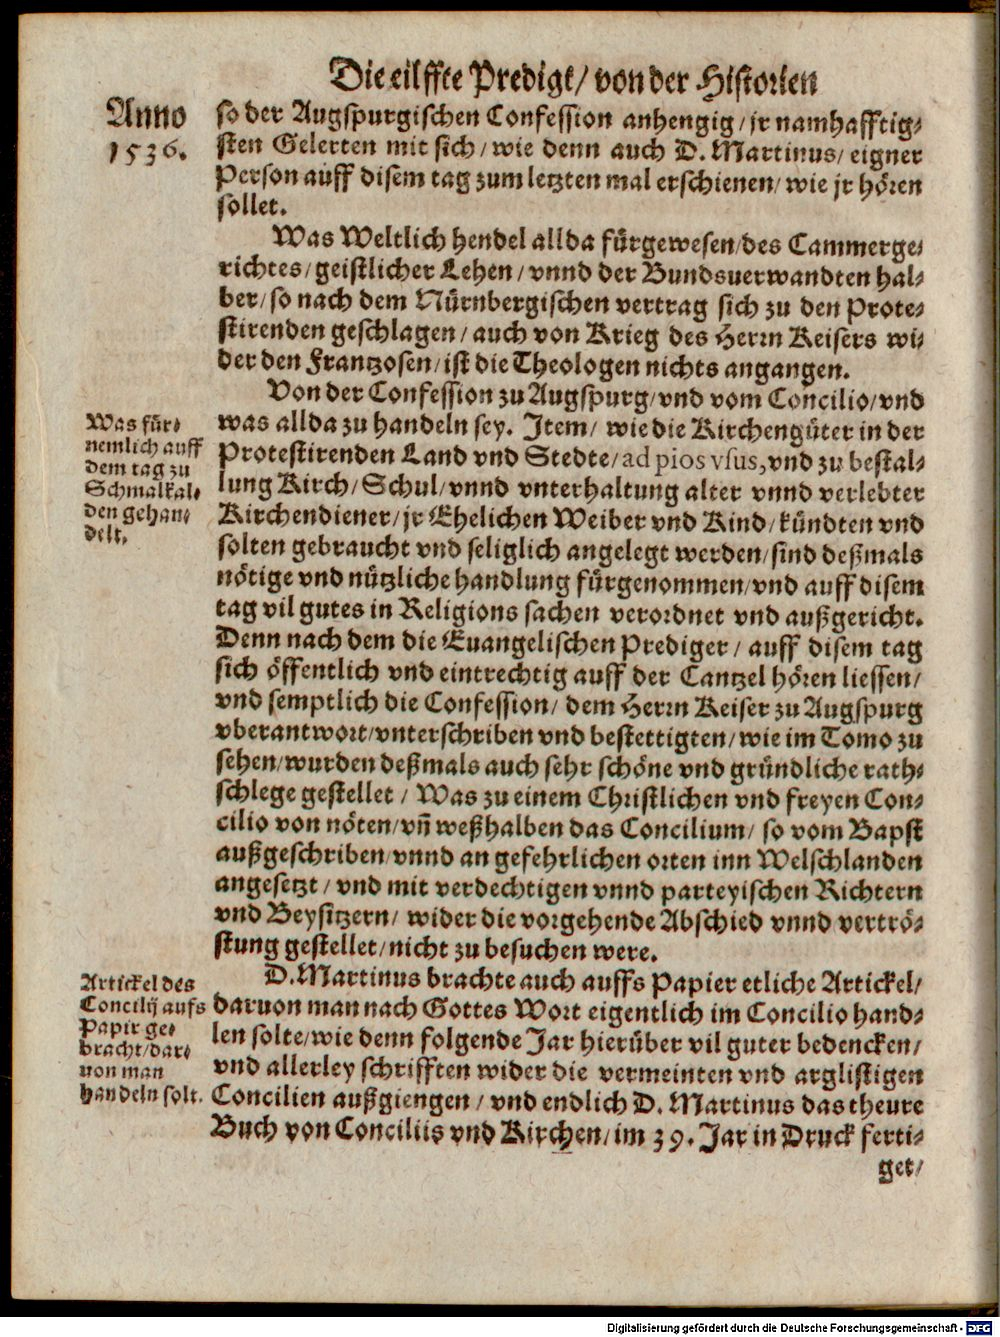 Die eilffte Predigt/ von der Historien
Anno
1536.
so der Augspurgischen Confession anhengig/ jr namhafftig-
sten Gelerten mit sich/ wie denn auch D. Martinus/ eigner
Person auff disem tag zum letzten mal erschienen/ wie jr hören
sollet.
Was Weltlich hendel allda fürgewesen/ des Cammerge-
richtes/ geistlicher Lehen/ vnnd der Bundsuerwandten hal-
ber/ so nach dem Nürnbergischen vertrag sich zu den Prote-
stirenden geschlagen/ auch von Krieg des Herrn Keisers wi-
der den Frantzosen/ ist die Theologen nichts angangen.
Von der Confession zu Augspurg/ vnd vom Concilio/ vnd
was allda zu handeln sey. Item/ wie die Kirchengüter in der
Protestirenden Land vnd Stedte/ ad pios vsus, vnd zu bestal-
lung Kirch/ Schul/ vnnd vnterhaltung alter vnnd verlebter
Kirchendiener/ jr Ehelichen Weiber vnd Kind/ kündten vnd
solten gebraucht vnd seliglich angelegt werden/ sind deßmals
nötige vnd nützliche handlung fürgenommen/ vnd auff disem
tag vil gutes in Religions sachen verordnet vnd außgericht.
Denn nach dem die Euangelischen Prediger/ auff disem tag
sich öffentlich vnd eintrechtig auff der Cantzel hören liessen/
vnd semptlich die Confession/ dem Herrn Keiser zu Augspurg
vberantwort/ vnterschriben vnd bestettigten/ wie im Tomo zu
sehen/ wurden deßmals auch sehr schöne vnd gründliche rath-
schlege gestellet/ Was zu einem Christlichen vnd freyen Con-
cilio von nöten/ vñ weßhalben das Concilium/ so vom Bapst
außgeschriben/ vnnd an gefehrlichen orten inn Welschlanden
angesetzt/ vnd mit verdechtigen vnnd parteyischen Richtern
vnd Beysitzern/ wider die vorgehende Abschied vnnd vertrö-
stung gestellet/ nicht zu besuchen were.
D. Martinus brachte auch auffs Papier etliche Artickel/
daruon man nach Gottes Wort eigentlich im Concilio hand-
len solte/ wie denn folgende Jar hierüber vil guter bedencken/
vnd allerley schrifften wider die vermeinten vnd arglistigen
Concilien außgiengen/ vnd endlich D. Martinus das theure
Buch von Conciliis vnd Kirchen/ im 39. Jar in Druck ferti-
get/
Was für-
nemlich auff
dem tag zu
Schmalkal-
den gehan-
delt.
Artickel des
Concilij aufs
Papir ge-
bracht/ dar-
uon man
handeln solt.
Digitalisierung gefördert durch die Deutsche Forschungsgemeinschaft - DFG